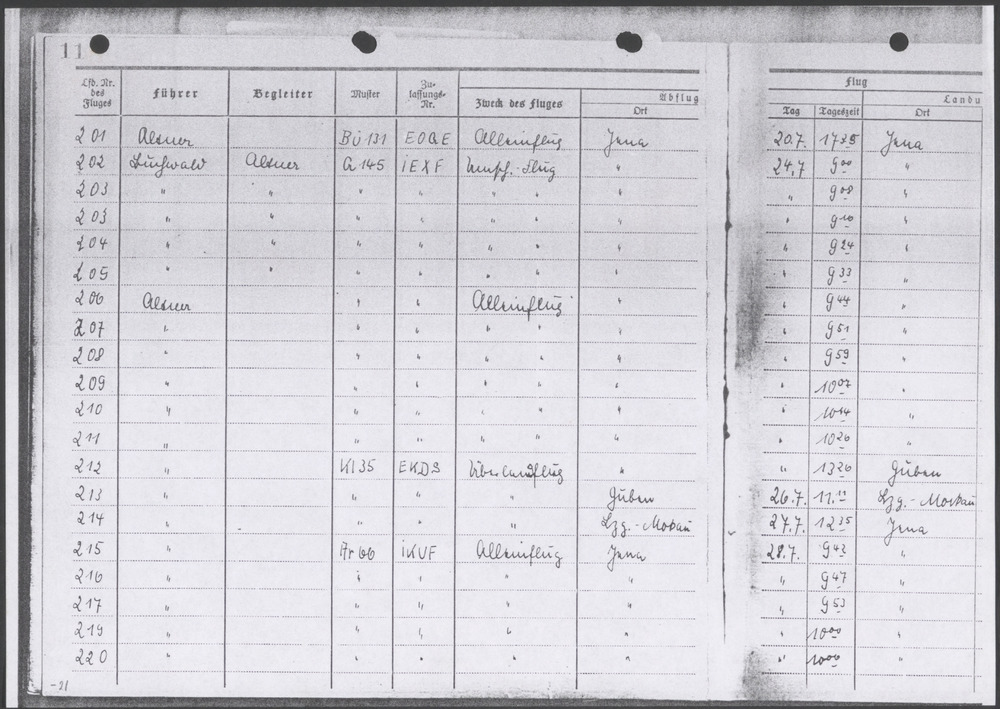 11
Lfd. Nr. des Fluges Führer Begleiter Muster Zu-lassungs-Nr. Zweck des Fluges Abflug Ort Flug Tag Tageszeit Landu Ort
201 Altner Bü 131 EOQE Alleinflug Jena 20.7. Jena
202 Buchwald Altner G. 145 IEXF -Flug " 24.7 9 00 "
203 " " " " " " " " 9 08 "
203 " " " " " " " " 9 16 "
204 " " " " " " " " 9 24 "
205 " " " " " " " " 9 33 "
206 Altner " " Alleinflug " " 9 44 "
207 " " " " " " " 9 51 "
208 " " " " " " " 9 59 "
209 " " " " " " " 10 07 "
210 " " " " " " " 10 14 "
211 " " " " " " " 10 26 "
212 " Kl 35 EKDS Überlandflug " " 13 20 Guben
213 " " " " Guben 26.7. 11. Lzg.-Mockau
214 " " " " Lzg.-Mockau 27.7. 12 35 Jena
215 " Ar 66 IKUF Alleinflug Jena 28.7. 9 42 "
216 " " " " " " 9 47 "
217 " " " " " " 9 53 "
219 " " " " " " 10 00 "
220 " " " " " " 10 06 "
-21